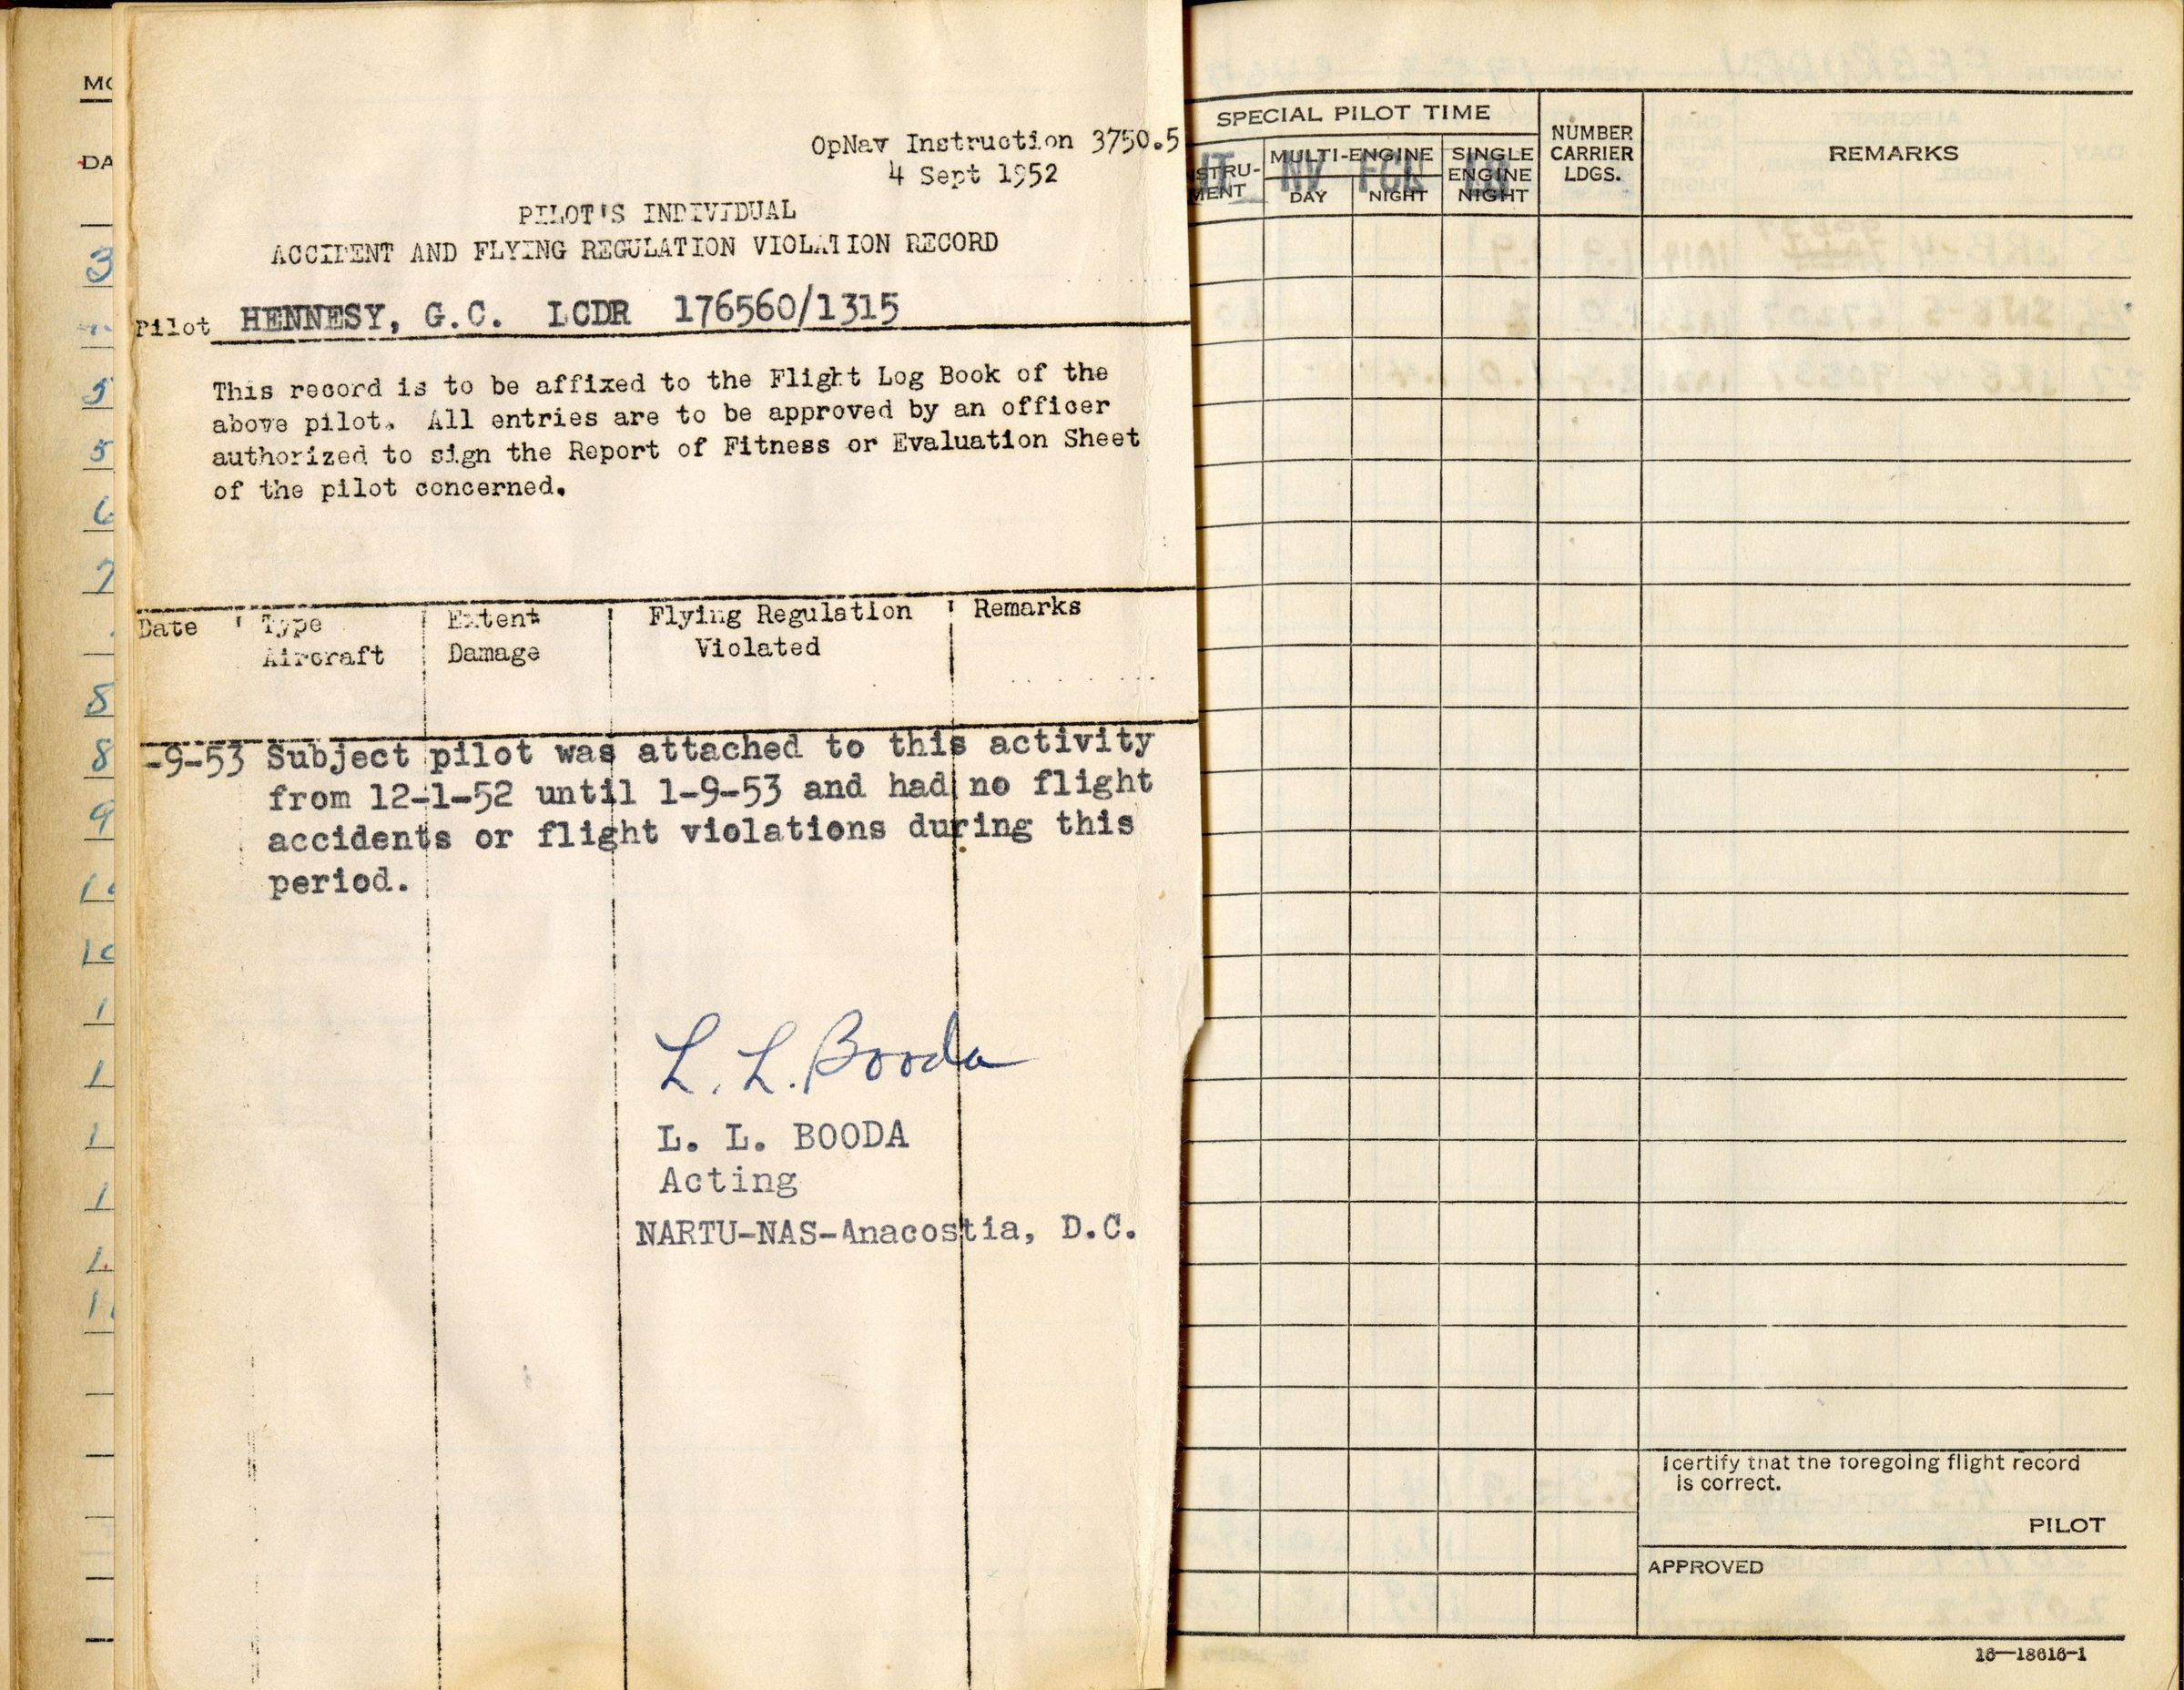 MO
DA
3
5
5
6
7
8
8
9
10
10
1
1
1
1
1
1
OpNav Instruction 3750.5
4 Sept 1952
PILOT'S INDIVIDUAL
ACCIDENT AND FLYING REGULATION VIOLATION RECORD
Pilot HENNESY, G.C. LCDR 176560/1315
This record is to be affixed to the Flight Log Book of the
above pilot. All entries are to be approved by an officer
authorized to sign the Report of Fitness or Evaluation Sheet
of the pilot concerned.
Date Type Extent Flying Regulation Remarks
Aircraft Damage Violated
-9-53 Subject pilot was attached to this activity
from 12-1-52 until 1-9-53 and had no flight
accidents or flight violations during this
period.
L. L. Booda
L. L. BOODA
Acting
NARTU-NAS-Anacostia, D.C.
SPECIAL PILOT TIME
NUMBER
CARRIER
LDGS.
REMARKS
STRU-
MENT
MULTI-ENGINE
DAY NIGHT
SINGLE
ENGINE
NIGHT
IT NV FCK LB
I certify that the foregoing flight record
is correct.
PILOT
APPROVED
16—18616-1